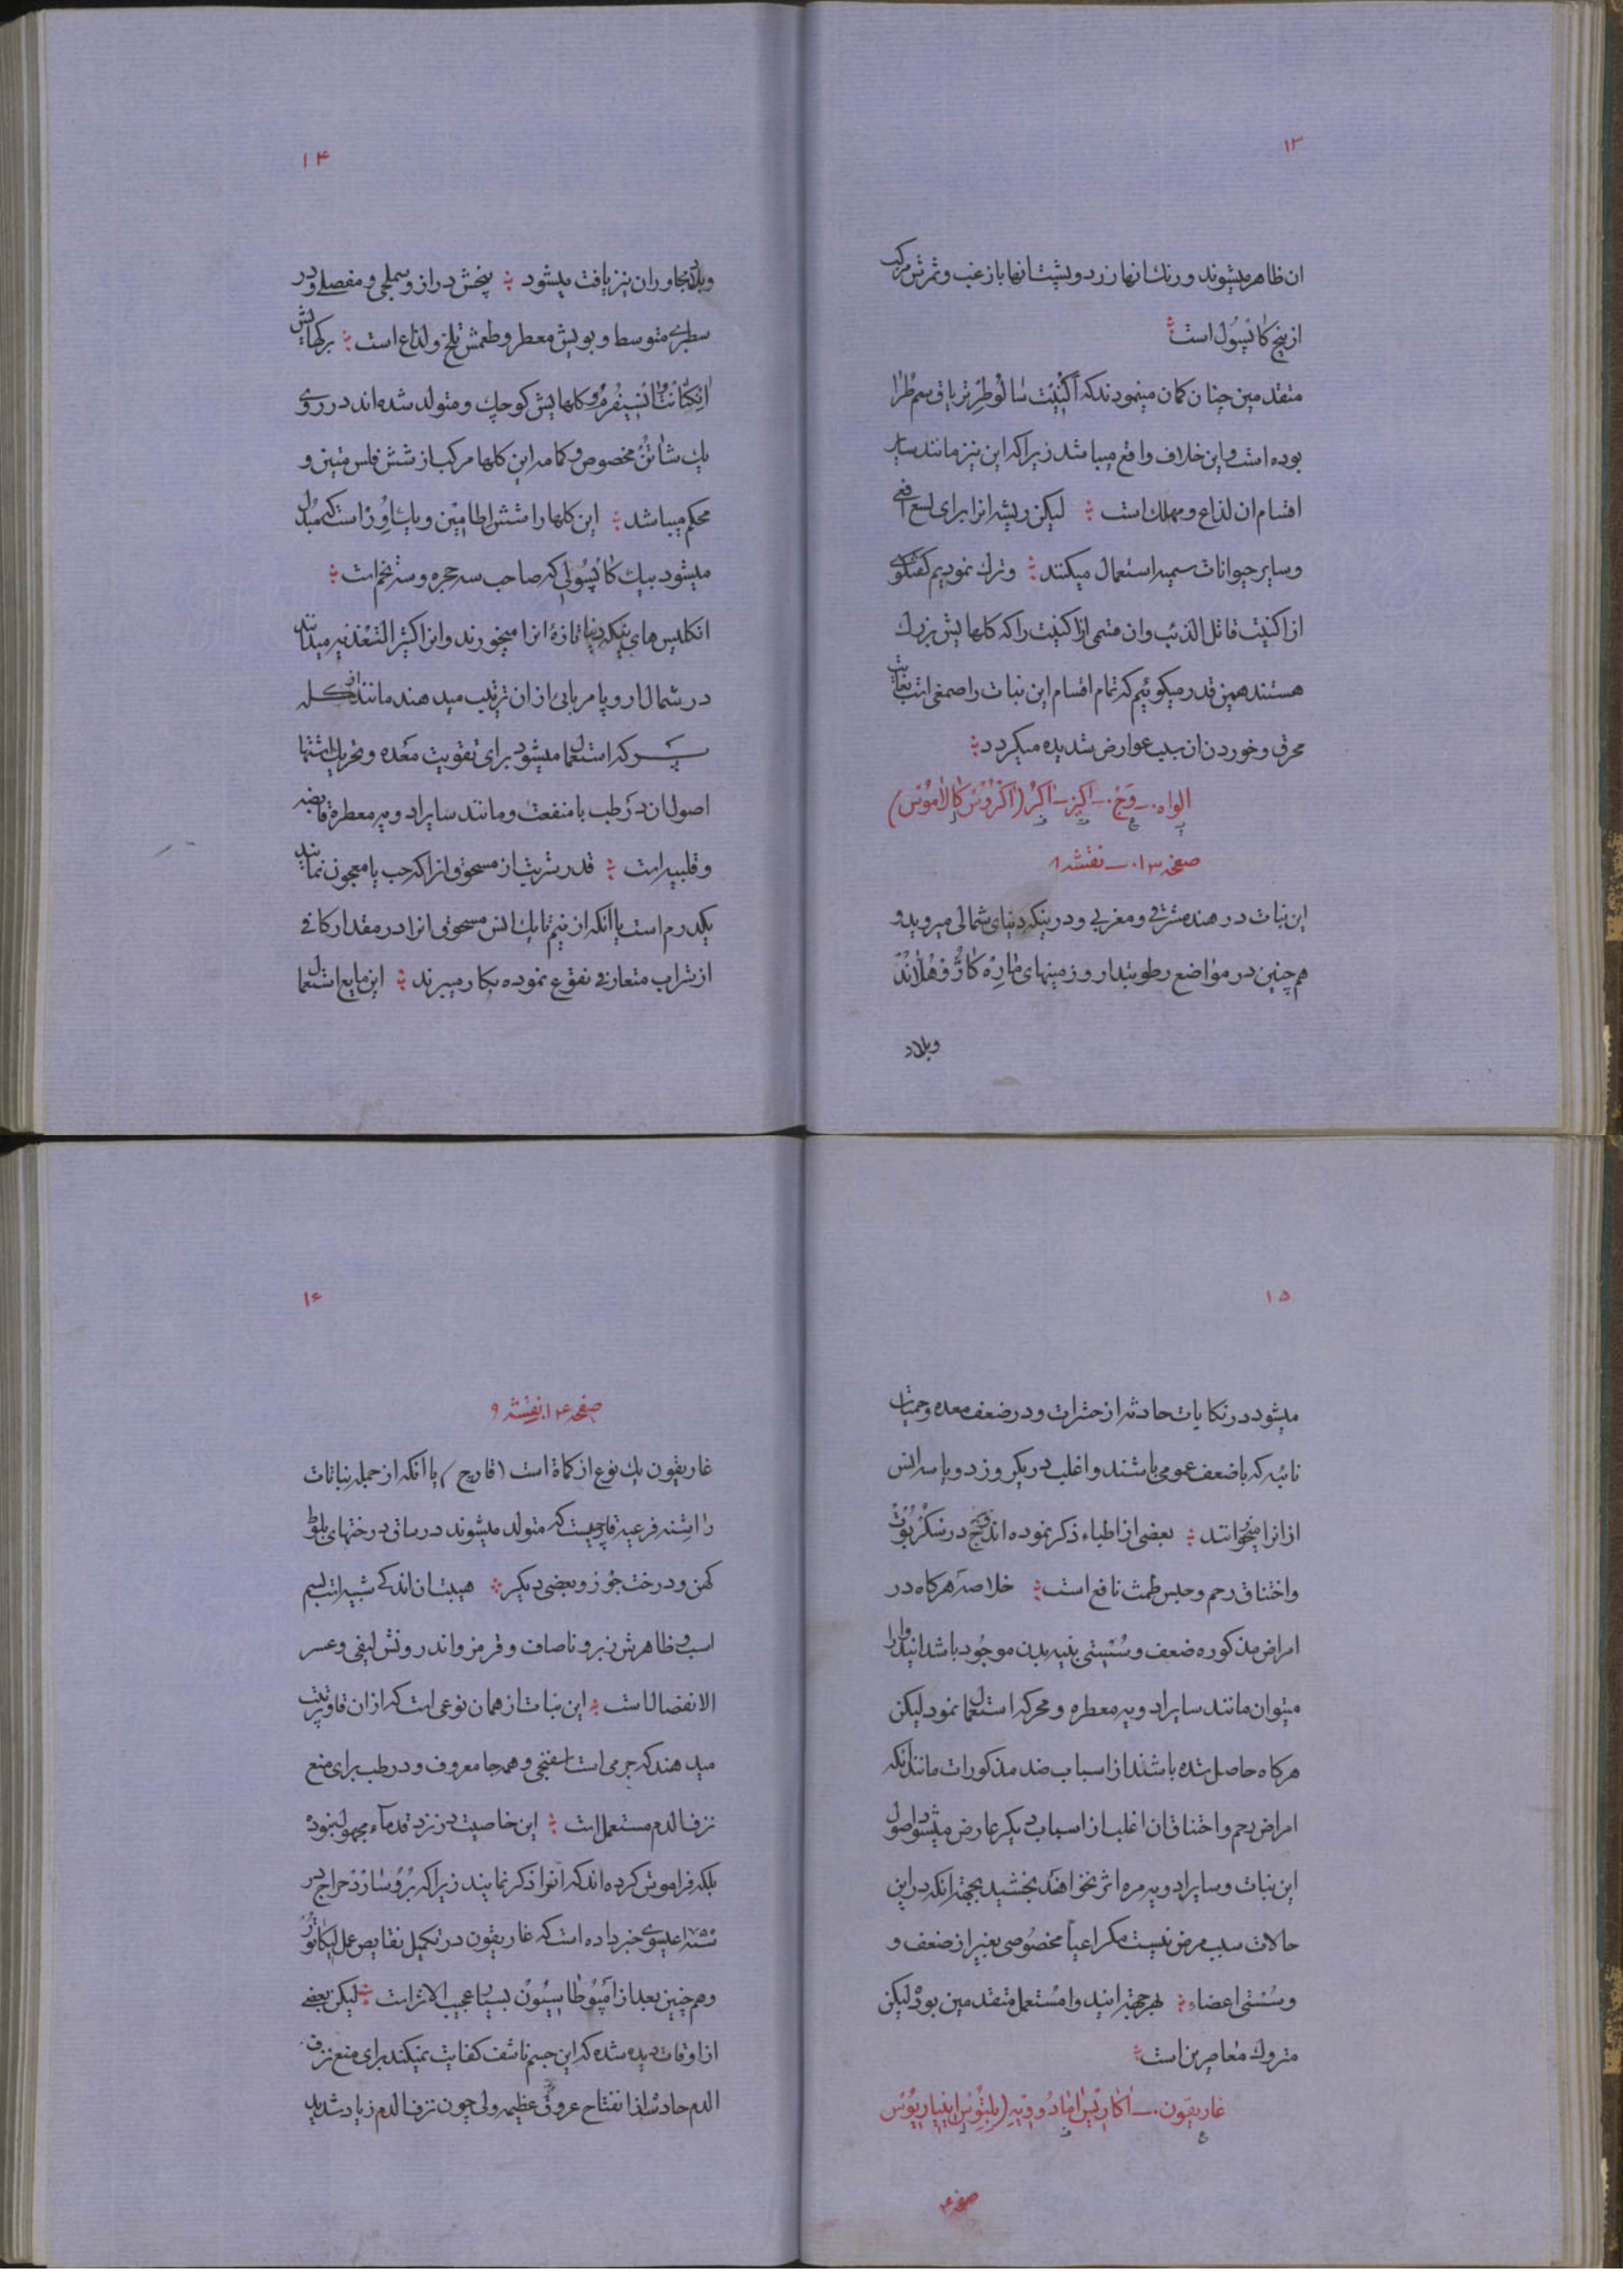 ۱۳
ان ظاهر میشوند و رنك انها زرد و پشت انها باز غب و ثمرش مركب
از پنج كاپسول است
متقدمین چنان كمان مینمودند كه اكنیت سالوطر تریاق سم طرا
بوده است و این خلاف واقع میباشد زیرا كه این نیز مانند سایر
اقسام ان لذاع و مهلك است لیكن ریشه انرا برای لسع افعی
و سایر حیوانات سمیه استعمال میكنند و ترك نمودیم كفتكوی
از اكنیت قاتل الذئب و ان متمی ازاكنیت را كه كلهایش بزرك
هستند همین قدر میكوئیم كه تمام اقسام این نبات را صمغی است بغایت
محرق و خوردن ان سبب عوارض شدیده میكردد
الواه ـ وج ـ اكیر ـ اكر (اكروس كالاموس)
صفحه ۱۰۳ ـ نقشه ۸
این نبات در هند مشرقی و مغربی و در ینكه دنیای شمالی میروید و
هم چنین در مواضع رطوبتدار و زمینهای قاره كارد هلاند
وبلاد
۱۴
و بلاد مجاور ان نیز یافت میشود بیخش دراز و سملجی و مفصلی و در
سطبری متوسط و بویش معطر و طعمش تلخ و لذاع است بركهایش
كلهایش كوچك و متولد شده اند در روی
یك شاتن مخصوص و كامه این كلها مركب از شش فلس متین و
محكم میباشد این كلها را شش اطامین و یك اور است كه مبدل
میشود بیك كاپسولی كه صاحب سه حجره و سه تخم است
انكلیس های ینكه دنیا تازه انرا میخورند و انرا كثیر التغذیه میدانند
در شمال اروپا مربائی از ان ترتیب میدهند مانند انكله
كه استعمال میشود برای تقویت معده و تحریك اشتها
اصول ان در طب با منفعت و مانند سایر ادویه معطره قابضه
و قلبیه است قدر شربت از مسحوق انرا كه حب یا معجون نمایند
یكدرم است یا انكه از نیم تا یك انس مسحوق انرا در مقدار كافی
از شراب متعارفی نقوع نموده بكار میبرند این مایع استعمال
۱۵
میشود در نكایات حادثه از حشرات و در ضعف معده و حمیات
نائبه كه با ضعف عمومی باشند و اغلب در یكروز دو یا سه انس
از انرا میخورانند بعضی از اطباء ذكر نموده اند وج در سكربوت
و اختناق رحم و حبس طمث نافع است خلاصه هركاه در
امراض مذكوره ضعف و سستی بنیه بدن موجود باشد ایندوا را
میتوان مانند سایر ادویه معطره و محركه استعمال نمود لیكن
هركاه حاصل شده باشند از اسباب ضد مذكورات مانند انكه
امراض رحم و اختناق ان اغلب از اسباب دیكر عارض میشود اصول
این نبات و سایر ادویه مره اثر نخواهند بخشید بجهه انكه در این
حالات سبب مرض نیست مكر اعیاً مخصوصی بغیر از ضعف و
و سستی اعضاء بهر جهه ایندوا مستعمل متقدمین بود لیكن
متروك معاصرین است
غاریقون ـ اكاریس امادوویه (بلتوس اینیاریوس
صفحه
۱۶
صفحه ۱۰۴ نقشه ۹
غاریقون یك نوع از كماة است (قارچ) یا انكه از جمله نباتات
را اشنه فرعیه قارچیست كه متولد میشوند در ساق درختهای بلوط
كهن و درخت جوز و بعضی دیكر هیئت ان اندكی شبیه است بسم
اسب و ظاهرش زبر و ناصاف و قرمز و اندرونش لیفی و عسر
الانفصال است این نبات از همان نوعی است كه از ان قاو ترتیب
میدهند كه جرمی است اسفنجی و همه جا معروف و در طب برای منع
نزف الدم مستعمل است این خاصیت در نزد قدماء مجهول نبوده
بلكه فراموش كرده اند كه انرا ذكر نمایند زیرا كه بروسارد جراح در
سنه ۱۷۵۰ عیسوی خبر داده است كه غاریقون در تكمیل نقایص عمل لیكاتور
و هم چنین بعد از امپوطاسیون بسیار عجیب الاثر است لیكن بعضی
از اوقات دیده شده كه این جسم ناشف كفایت نمیكند برای منع نزف
الدم حادثه از انفتاح عروقی عظیمه ولی چون نزف الدم زیاد شدید